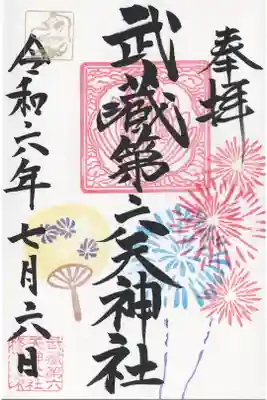 奉拝
武蔵第六天神社
令和六年七月六日